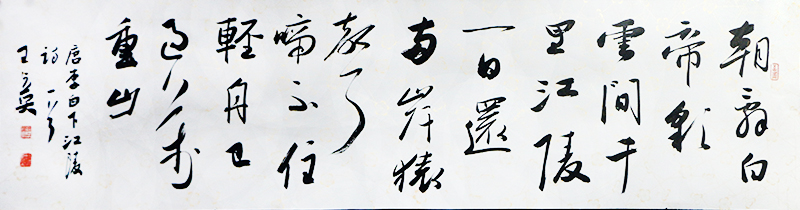 朝辭白
帝彩
雲間千
里江陵
一日還
兩岸猿
聲
啼不住
輕舟已
過萬
重山
唐李白下江陵
詩一首
王英